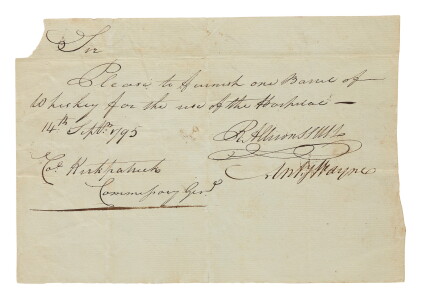 Sir
Please to furnish one Barrel of
Whiskey for the use of the Hospital —
14th Septr. 1795
Ant'y Wayne
Col. Kirkpatrick
Commissary Genl